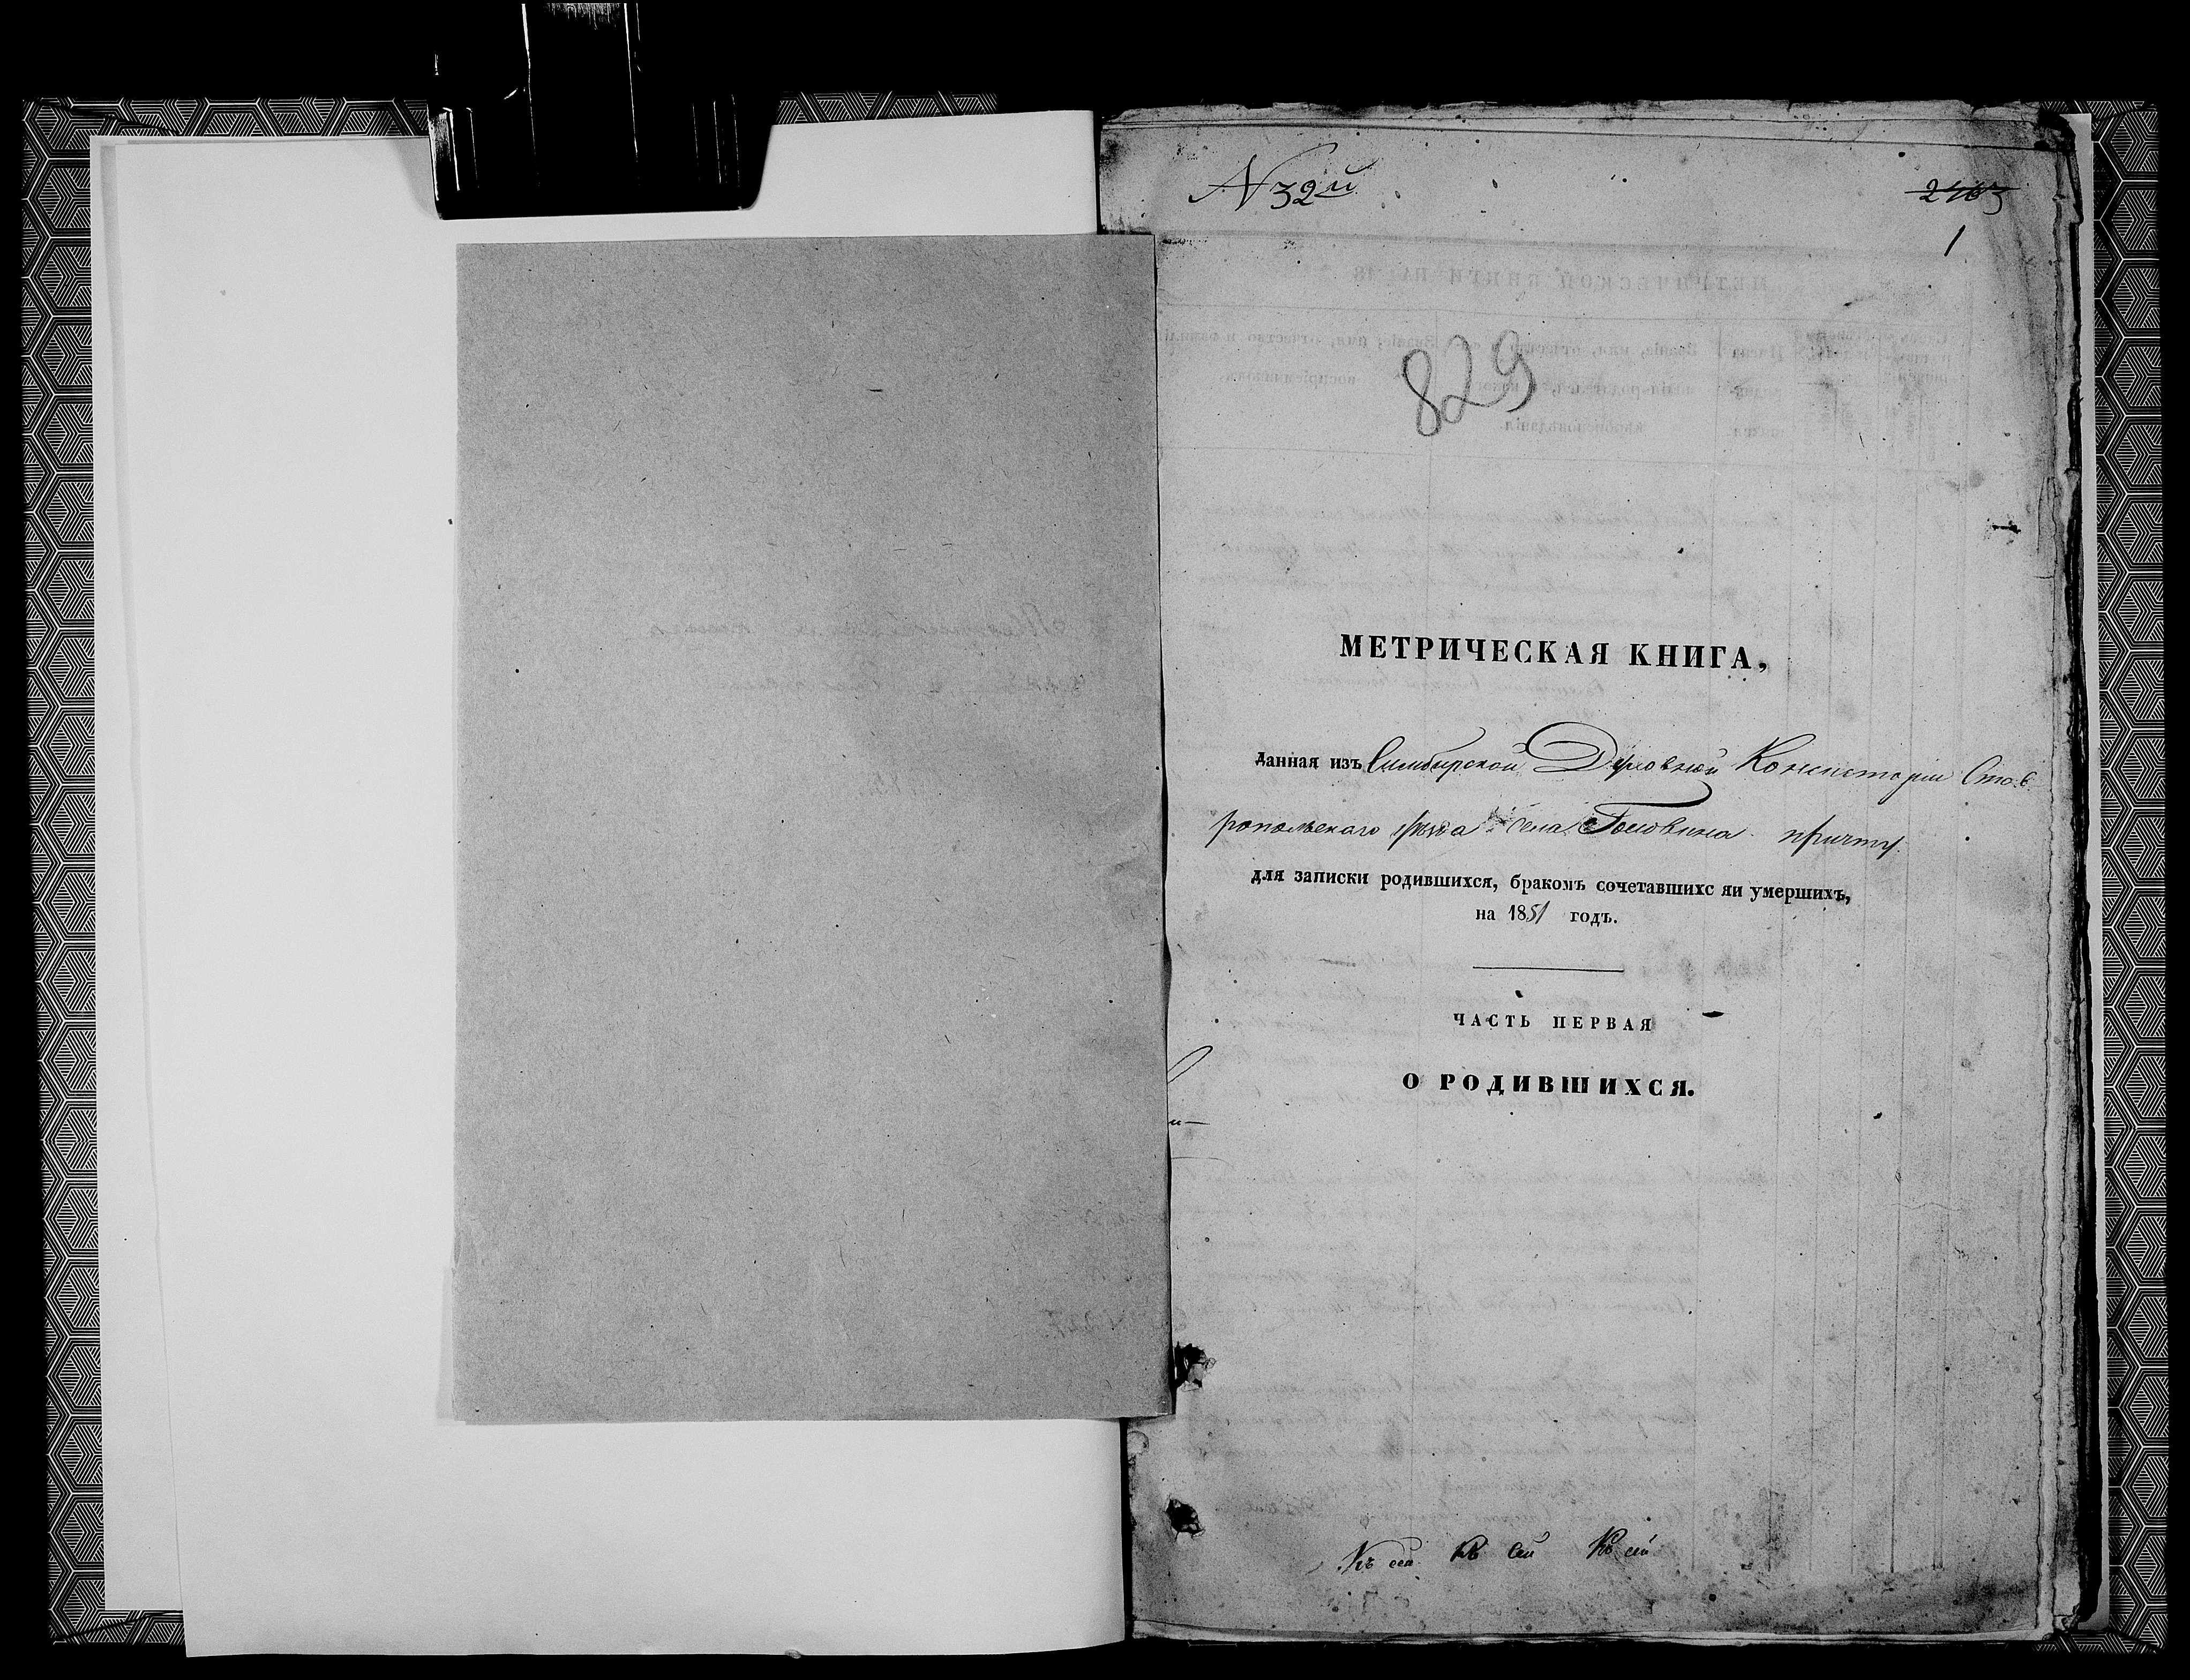 N 32й
2463
1
829
МЕТРИЧЕСКАЯ КНИГА,
данная изъ Симбирской Духовной Консисторіи Став
ропольскаго уѣзда села Головина причту
для записки родившихся, бракомъ сочетавшихс яи умершихъ,
на 1851 годъ.
ЧАСТЬ ПЕРВАЯ
О РОДИВШИХСЯ.
Къ сей Къ сей Къ сей